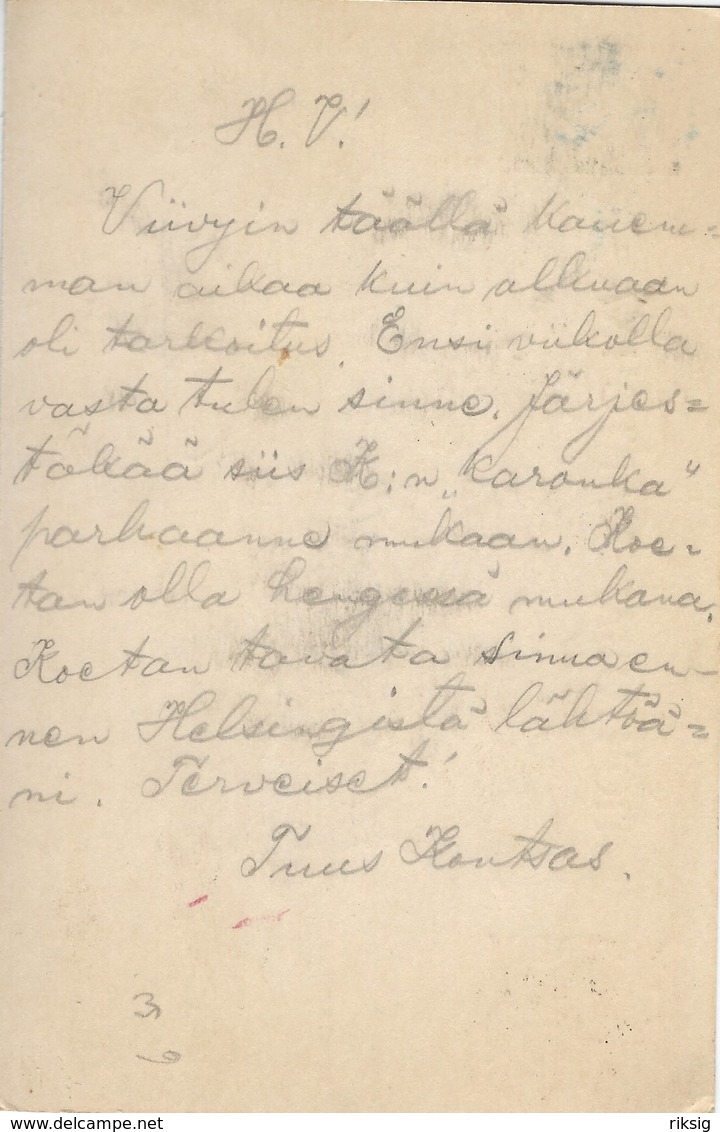 H. V.!
Viivyin täällä kauem=
man aikaa kuin alkuaan
oli tarkoitus. Ensi viikolla
vasta tulen sinne. Järjes=
täkää siis K:n „karonka“
parhaanne mukaan. Koe=
tan olla hengessä mukana.
Koetan tavata sinua en-
nen Helsingistä lähtöä=
ni. Terveiset!
Tuus Kontsas.
3
9
delcampe.net
riksig